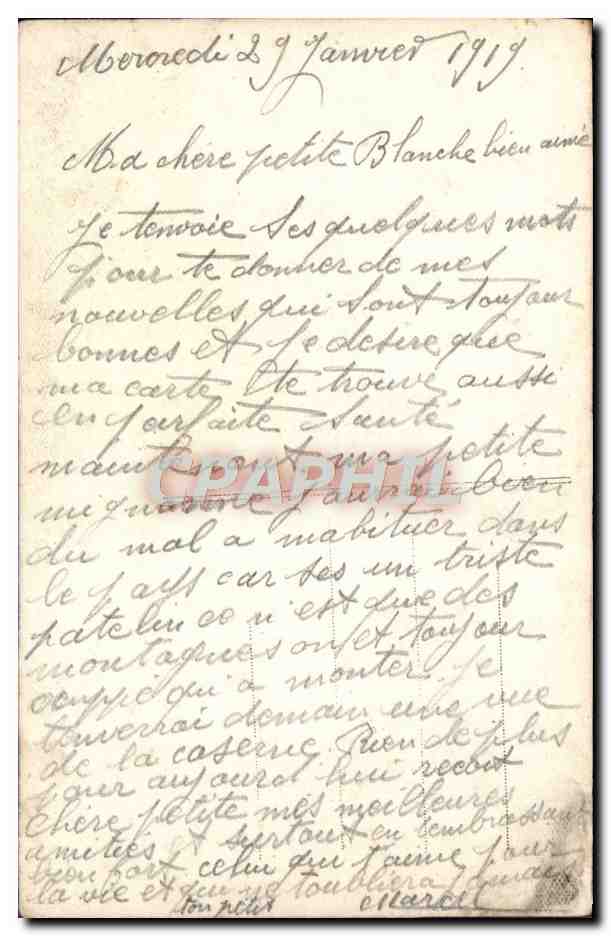 Mercredi 29 Janvier 1919
Ma chère petite Blanche bien aimé
Je tenvoie ses quelques mots
pour te donner de mes
nouvelles qui sont toujour
bonnes et je desire que
ma carte te trouve aussi
en parfaite santé
maintenant ma petite
mignonne j'aurrai bien
du mal a mabituer dans
le pays car ses un triste
patelin ce n'est que des
montagnes on et toujour
ocuppé qu'a monter Je
tenverrai demain une vue
de la caserne. Rien de plus
pour aujourd hui recoit
chère petite mes meilleures
amitiés et surtout en tembrassant
bien fort celui qui t'aime pour
la vie et qui ne toubliera jamais
ton petit Marcel
CPAPHIL